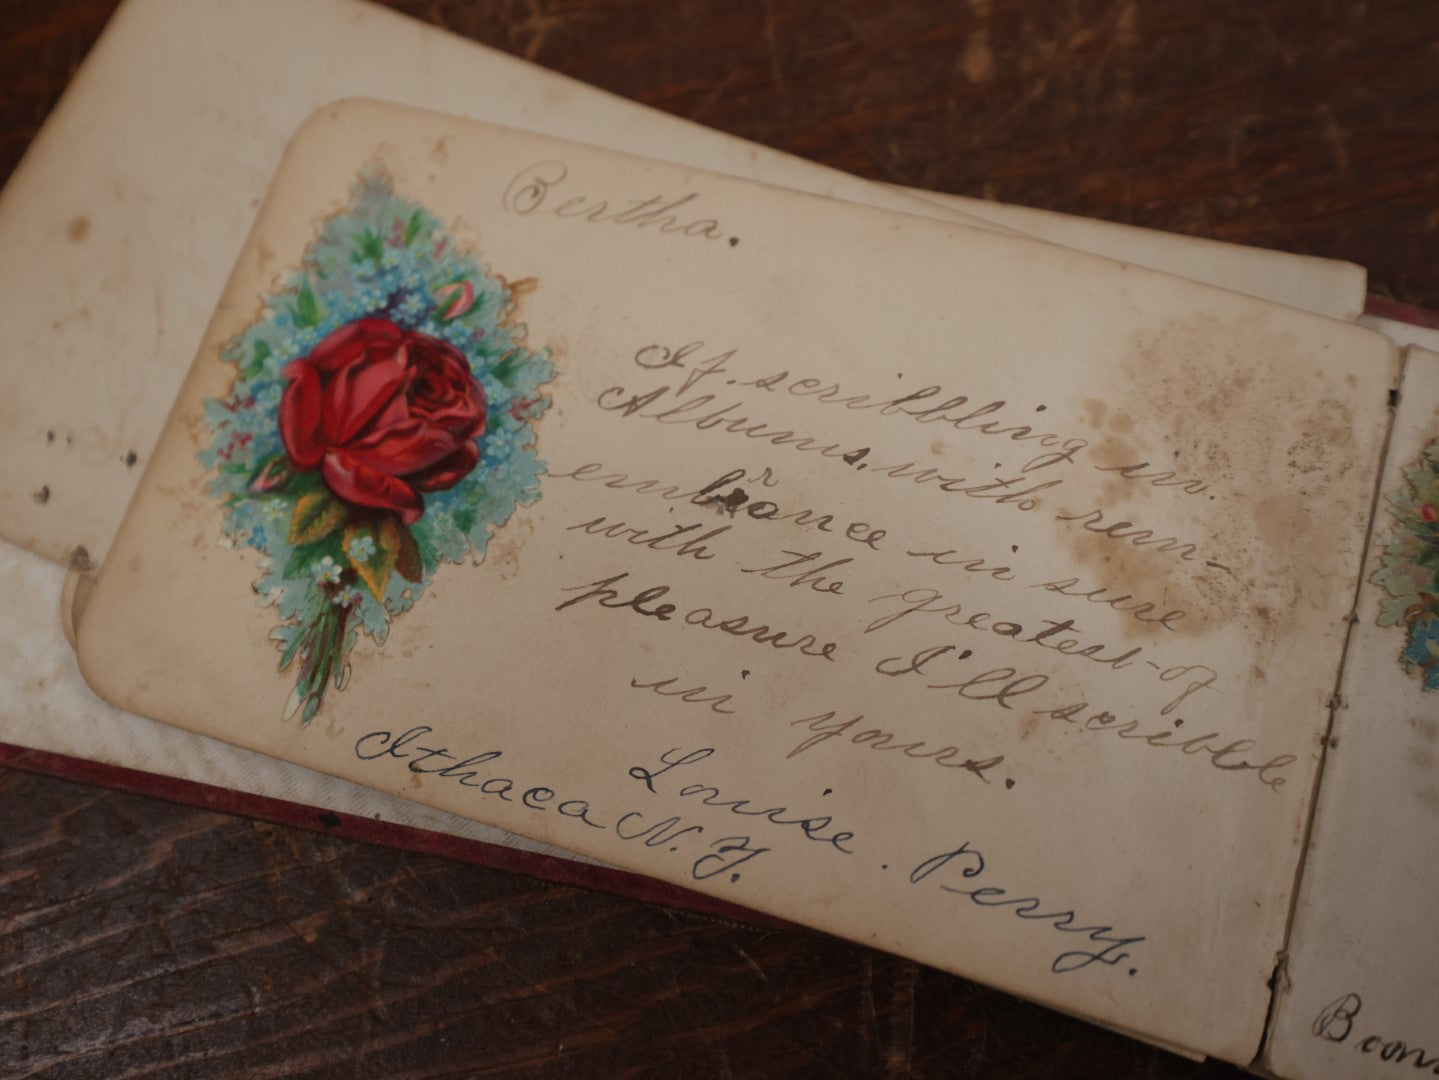 Bertha.
If scribbling in
Albums, with rem-
embrance in sure
with the greatest of
pleasure I'll scribble
in yours.
Louise. Perry.
Ithaca N.Y.
Boon